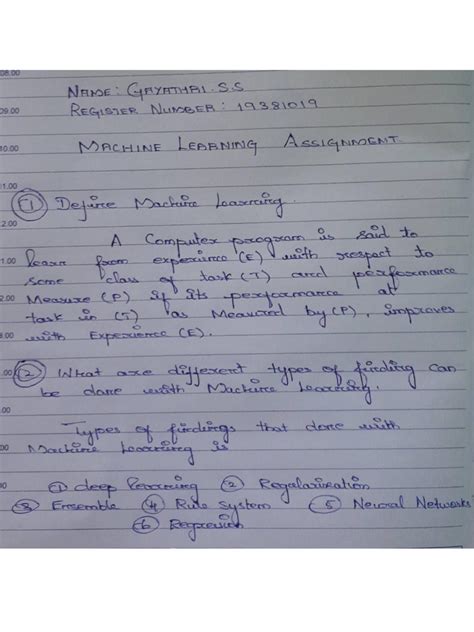 08.00
NAME: GAYATHRI.S.S
09.00 REGISTER NUMBER: 19381019
10.00 MACHINE LEARNING ASSIGNMENT.
11.00
① Define Machine Learning.
12.00
A Computer program is said to
1.00 learn from experience (E) with respect to
some class of task (T) and performance
2.00 Measure (P) if its performance at
task in (T) as Measured by (P), improves
3.00 with Experience (E).
.00 ② What are different types of finding can
be done with Machine Learning.
.00
Types of findings that done with
00 Machine Learning is
00 ① deep learning ② Regularization
③ Ensemble ④ Rule System ⑤ Neural Networks
⑥ Regression